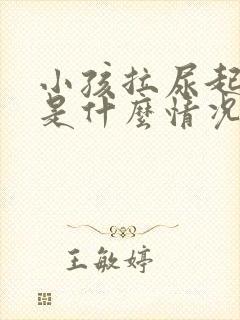 小孩拉尿起
是什麼情况
王敏婷